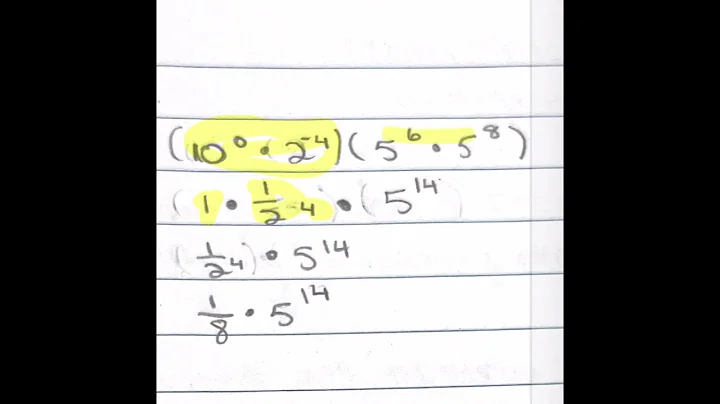 (10⁰ • 2⁻⁴)(5⁶ • 5⁸)
(1 • 1/2⁻⁴) • (5¹⁴)
(1/2⁴) • 5¹⁴
1/8 • 5¹⁴